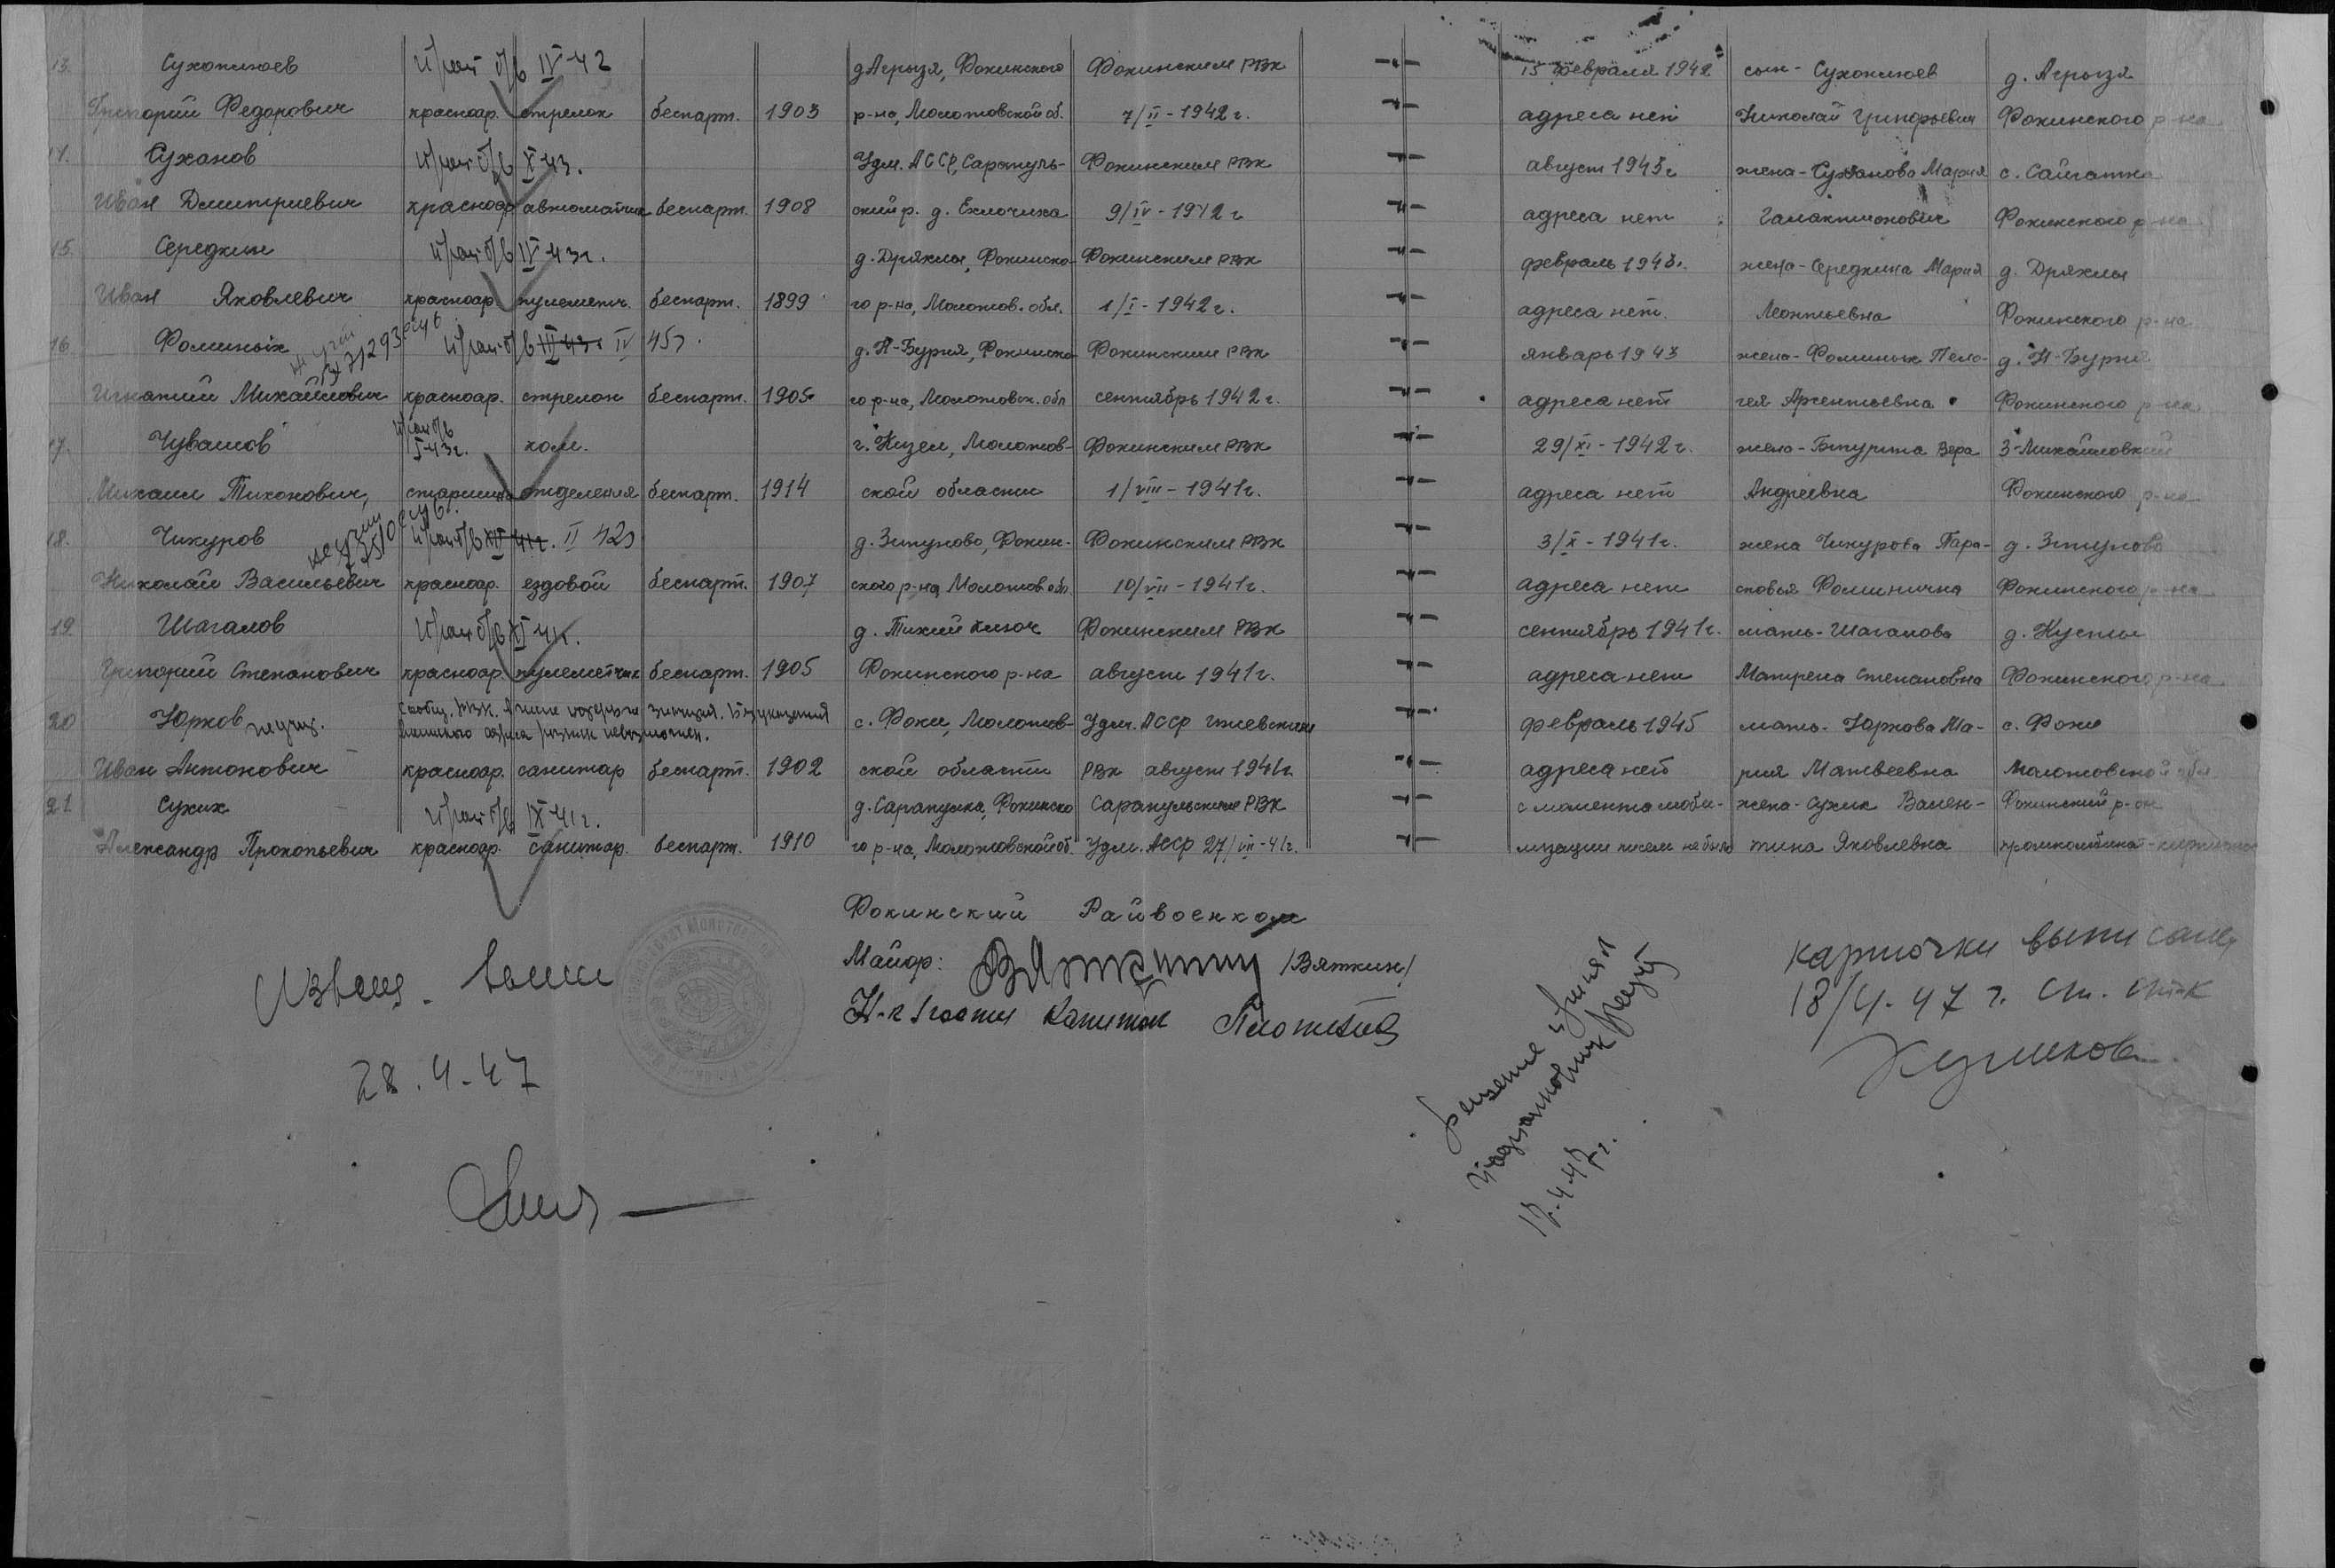 13. Сухоплюев И/рай б/в IV 42 д. Агрызя, Фокинского Фокинским РВК —"— 15 февраля 1942 сын - Сухоплюев д. Агрызя
Григорий Федорович красноар. стрелок беспарт. 1903 р-на, Молотовской об. 7/II - 1942 г. —"— адреса нет Николай Григорьевич Фокинского р-на
14. Суханов б/в X 43. Удм. АССР, Сарапуль- Фокинским РВК —"— август 1943 г жена - Суханова Мария с. Сайгатка
Иван Дмитриевич красноар автоматчик беспарт. 1908 ский р. д. 9/IV - 1942 г —"— адреса нет Галактионович Фокинского р-на
15. Середкин б/в IV 43 г. д. Дряхлы, Фокинско- Фокинским РВК —"— февраль 1943 г. жена - Середкина Мария д. Дряхлы
Иван Яковлевич красноар пулеметч. беспарт. 1899 го р-на, Молотов. обл. 1/I - 1942 г. —"— адреса нет. Леонтьевна Фокинского р-на
16. Фоминых б/в IV 45 г. д. Н-Бурня, Фокинско Фокинским РВК —"— январь 1943 жена - Фоминых Пела- д. Н-Бурня
Игнатий Михайлович красноар. стрелок беспарт. 1905 го р-на, Молотовск. обл сентябрь 1942 г. —"— адреса нет гея Арсентьевна Фокинского р-на
17. Чувашов б/в I 43 г. ком. г. Кизел, Молотов- Фокинским РВК —"— 29/XI - 1942 г. жена - Батурина Вера З-Михайловский
Михаил Тихонович, старшина отделения беспарт. 1914 ской области 1/VIII - 1941 г. —"— адреса нет Андреевна Фокинского р-на
18. Чикуров б/в XII 41 г. II 42 г д. Зипуново, Фокин- Фокинским РВК —"— 3/X - 1941 г. жена Чикурова Пара- д. Зипуново
Николай Васильевич красноар. ездовой беспарт. 1907 ского р-на Молотов. обл 10/VII - 1941 г. —"— адреса нет сковья Фоминична Фокинского р-на
19 Шагалов б/в XI 41 г. д. Тихий Ключ Фокинским РВК —"— сентябрь 1941 г. мать - Шагалова д. Кусты
Григорий Степанович красноар. пулеметчик беспарт. 1905 Фокинского р-на август 1941 г. —"— адреса нет Матрена Степановна Фокинского р-на
20 Юрков с. Фоки, Молотов- Удм. АССР Ижевским —"— февраль 1945 мать - Юркова Ма- с. Фоки
Иван Антонович красноар. санитар беспарт. 1902 ской области РВК август 1941 г. —"— адреса нет рия Матвеевна Молотовской обл
21 Сухих б/в IX 41 г. д. Сарапулка, Фокинско Сарапульским РВК —"— с момента моби- жена - Сухих Вален- Фокинский р-он
Александр Прокопьевич красноар. санитар. беспарт. 1910 го р-на, Молотовской об. Удм. АССР 27/VII - 41 г. —"— лизации писем не было тина Яковлевна промкомбинат
Фокинский Райвоенком
Майор: Вяткин /Вяткин/
Н-к 1 части Капитан
Извещ.
28.4-47
Карточки выписаны
18/4-47 г. ст.